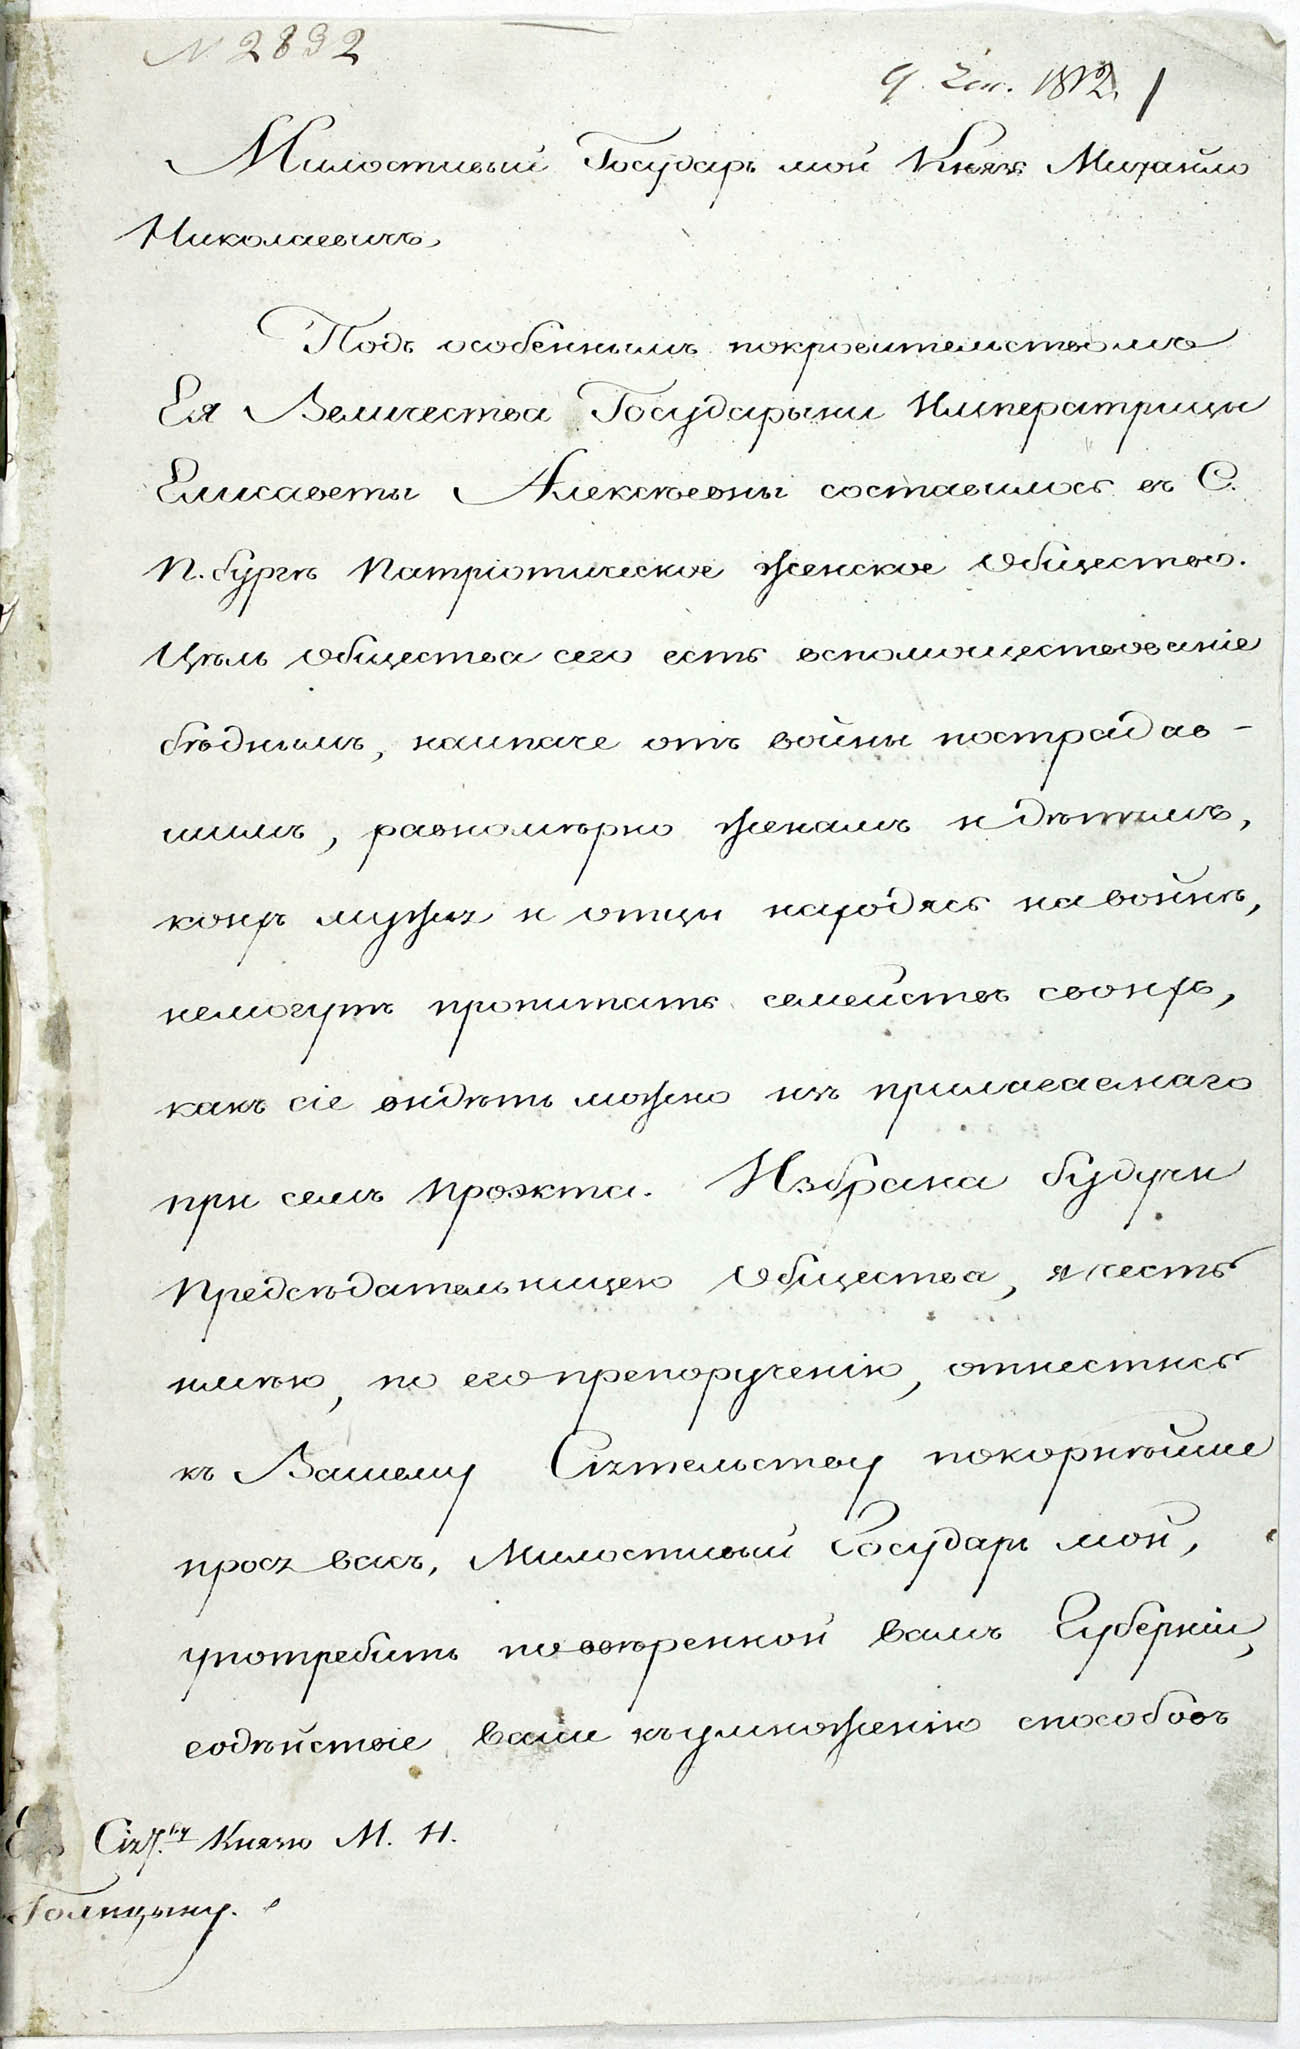 N 2832
9. Дек. 1812. 1
Милостивый Государь мой Князь Михайло
Николаевичъ,
Подъ особеннымъ покровительствомъ
Ея Величества Государыни Императрицы
Елисаветы Алексѣевны составилось въ С.
П.бургѣ Патріотическое Женское Общество.
Цѣль Общества сего есть вспомоществованіе
бѣднымъ, наипаче отъ войны пострадав-
шимъ, равномѣрно женамъ и дѣтямъ,
коихъ мужья и отцы находясь на войнѣ,
немогутъ пропитать семействъ своихъ,
какъ сіе видѣть можно изъ прилагаемаго
при семъ проэкта. Избрана будучи
Предсѣдательницею Общества, я честь
имѣю, по его препорученію, отнестись
къ Вашему Сіятельству покорнѣйше
прося васъ, Милостивый Государь мой,
употребить по ввѣренной вамъ Губерніи,
содѣйствіе ваше къ умноженію способовъ
Сіят.ву Князю М. Н.
Голицыну.